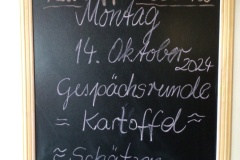 Montag
14. Oktober 2024
Gespächsrunde
≈ Kartoffel ≈